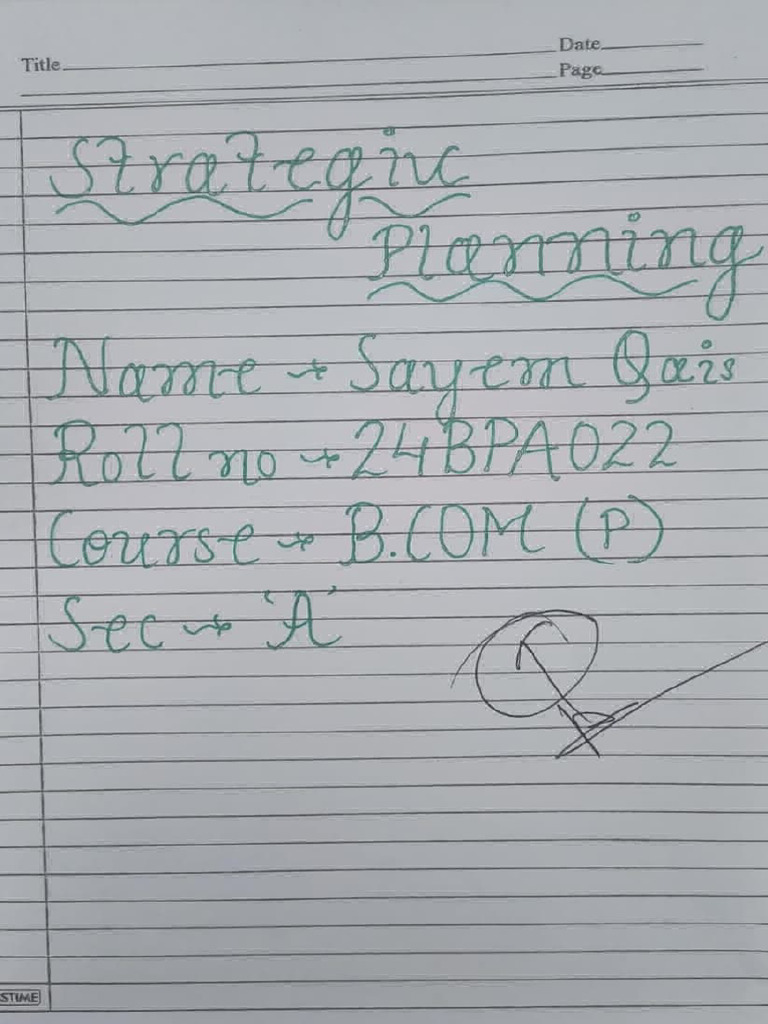 Title
Date
Page
Strategic
Planning
Name → Sayem Qais
Roll no → 24BPA022
Course → B.COM (P)
Sec → 'A'
STIME